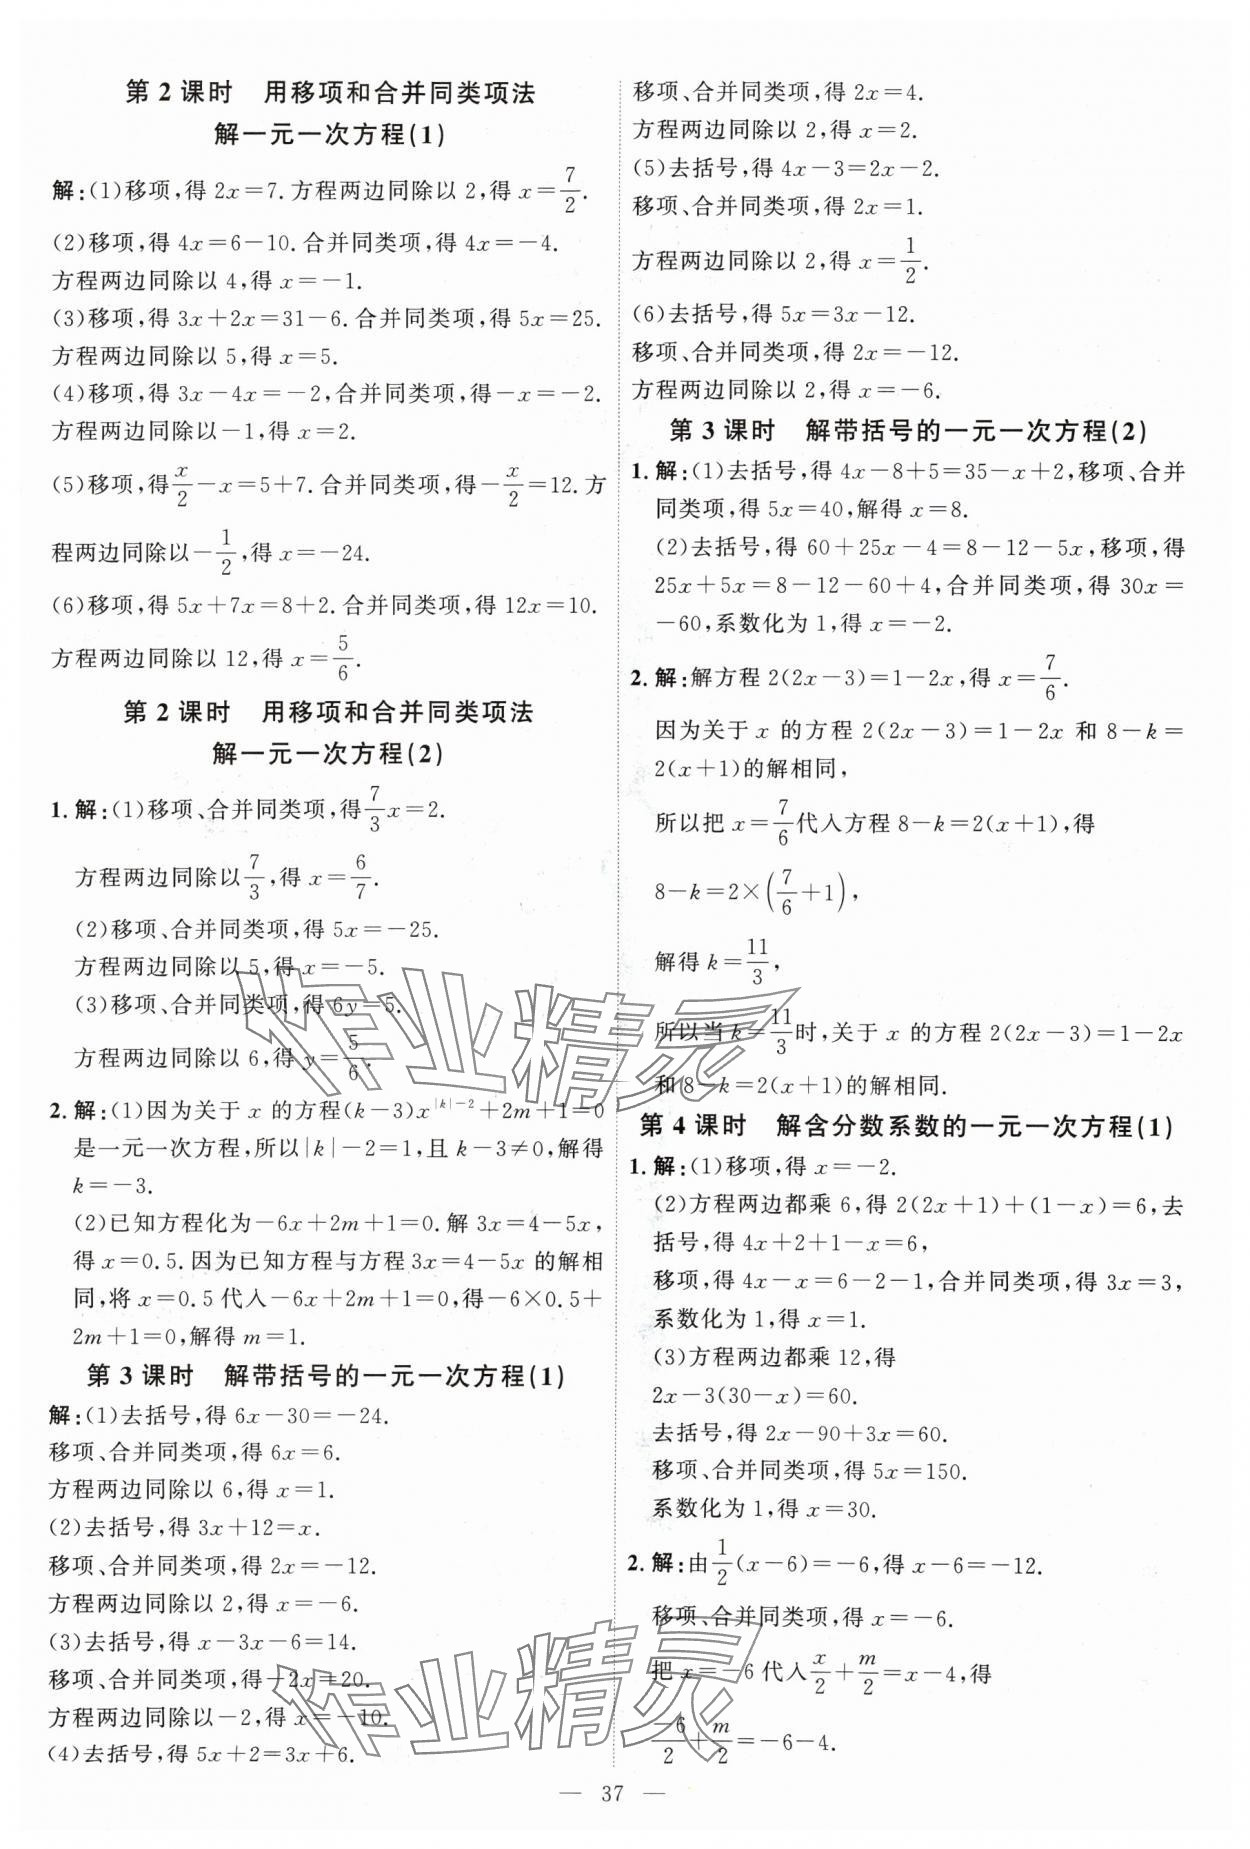 第 2 课时　用移项和合并同类项法
解一元一次方程(1)
解:(1)移项,得 2x=7. 方程两边同除以 2,得 x=7/2.
(2)移项,得 4x=6-10. 合并同类项,得 4x=-4.
方程两边同除以 4,得 x=-1.
(3)移项,得 3x+2x=31-6. 合并同类项,得 5x=25.
方程两边同除以 5,得 x=5.
(4)移项,得 3x-4x=-2,合并同类项,得-x=-2.
方程两边同除以-1,得 x=2.
(5)移项,得x/2-x=5+7. 合并同类项,得-x/2=12. 方
程两边同除以-1/2,得 x=-24.
(6)移项,得 5x+7x=8+2. 合并同类项,得 12x=10.
方程两边同除以 12,得 x=5/6.
第 2 课时　用移项和合并同类项法
解一元一次方程(2)
1. 解:(1)移项、合并同类项,得7/3x=2.
方程两边同除以7/3,得 x=6/7.
(2)移项、合并同类项,得 5x=-25.
方程两边同除以 5,得 x=-5.
(3)移项、合并同类项,得 6y=5.
方程两边同除以 6,得 y=5/6.
2. 解:(1)因为关于 x 的方程(k-3)x^{|k|-2}+2m+1=0
是一元一次方程,所以|k|-2=1,且 k-3≠0,解得
k=-3.
(2)已知方程化为-6x+2m+1=0. 解 3x=4-5x,
得 x=0.5. 因为已知方程与方程 3x=4-5x 的解相
同,将 x=0.5 代入-6x+2m+1=0,得-6×0.5+
2m+1=0,解得 m=1.
第 3 课时　解带括号的一元一次方程(1)
解:(1)去括号,得 6x-30=-24.
移项、合并同类项,得 6x=6.
方程两边同除以 6,得 x=1.
(2)去括号,得 3x+12=x.
移项、合并同类项,得 2x=-12.
方程两边同除以 2,得 x=-6.
(3)去括号,得 x-3x-6=14.
移项、合并同类项,得-2x=20.
方程两边同除以-2,得 x=-10.
(4)去括号,得 5x+2=3x+6.
移项、合并同类项,得 2x=4.
方程两边同除以 2,得 x=2.
(5)去括号,得 4x-3=2x-2.
移项、合并同类项,得 2x=1.
方程两边同除以 2,得 x=1/2.
(6)去括号,得 5x=3x-12.
移项、合并同类项,得 2x=-12.
方程两边同除以 2,得 x=-6.
第 3 课时　解带括号的一元一次方程(2)
1. 解:(1)去括号,得 4x-8+5=35-x+2,移项、合并
同类项,得 5x=40,解得 x=8.
(2)去括号,得 60+25x-4=8-12-5x,移项,得
25x+5x=8-12-60+4,合并同类项,得 30x=
-60,系数化为 1,得 x=-2.
2. 解:解方程 2(2x-3)=1-2x,得 x=7/6.
因为关于 x 的方程 2(2x-3)=1-2x 和 8-k=
2(x+1)的解相同,
所以把 x=7/6代入方程 8-k=2(x+1),得
8-k=2×(7/6+1),
解得 k=11/3,
所以当 k=11/3时,关于 x 的方程 2(2x-3)=1-2x
和 8-k=2(x+1)的解相同.
第 4 课时　解含分数系数的一元一次方程(1)
1. 解:(1)移项,得 x=-2.
(2)方程两边都乘 6,得 2(2x+1)+(1-x)=6,去
括号,得 4x+2+1-x=6,
移项,得 4x-x=6-2-1,合并同类项,得 3x=3,
系数化为 1,得 x=1.
(3)方程两边都乘 12,得
2x-3(30-x)=60.
去括号,得 2x-90+3x=60.
移项、合并同类项,得 5x=150.
系数化为 1,得 x=30.
2. 解:由1/2(x-6)=-6,得 x-6=-12.
移项、合并同类项,得 x=-6.
把 x=-6 代入x/2+m/2=x-4,得
-6/2+m/2=-6-4.
— 37 —
作业精灵
作业精灵